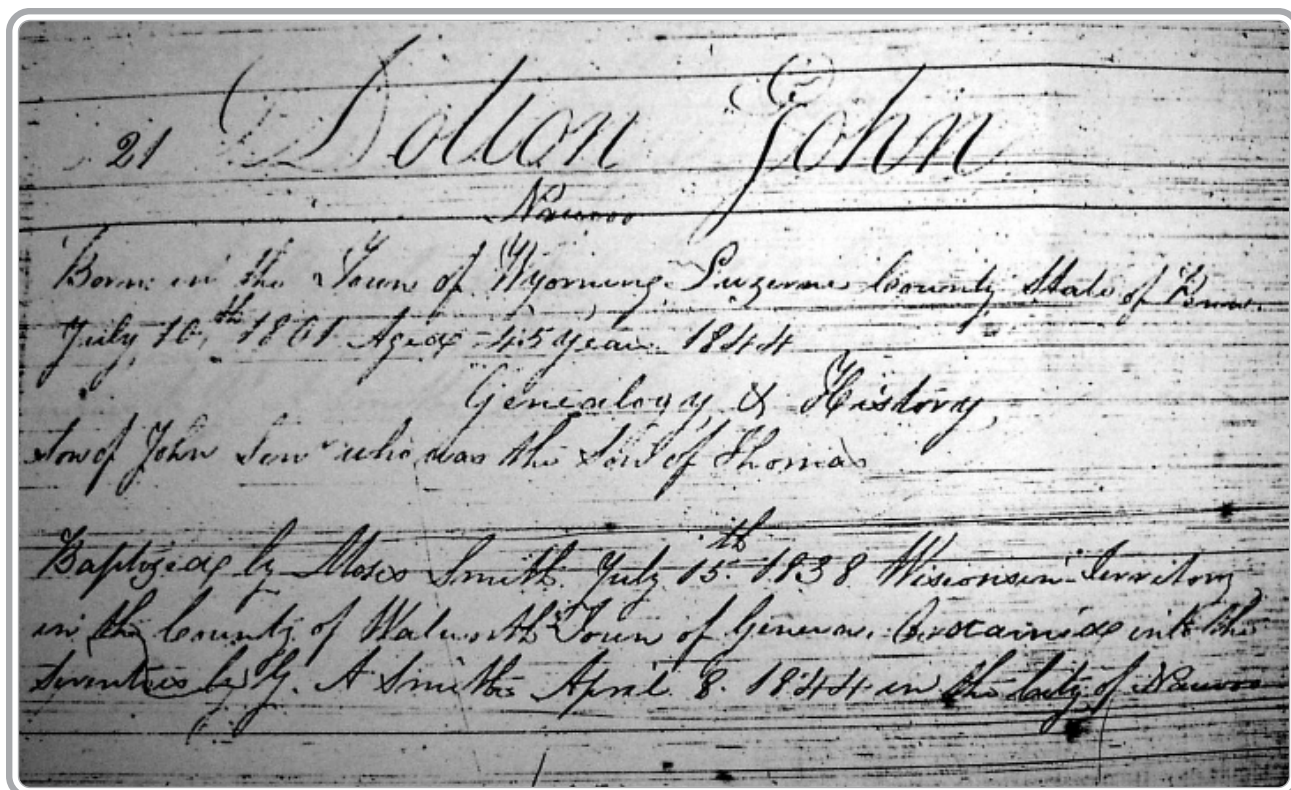 21 Dolton John
Nauvoo
Born in the Town of Wyoming Luzerne County State of Penn.
July 10th 1801 Aged 45 years 1844
Genealogy & History
Son of John Senr who was the Son of Thomas
Baptized by Moses Smith July 15th 1838 Wisconsin Territory
in the County of Walworth Town of Geneva. Ordained into the
Seventies by G. A Smith April 8. 1844 in the City of Nauvoo